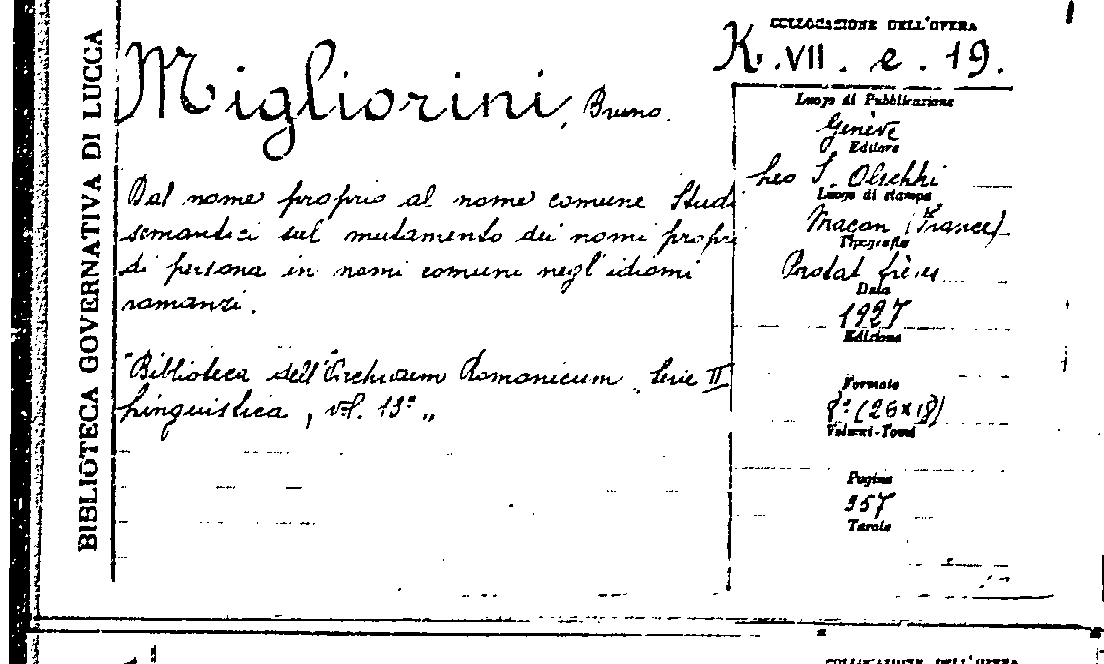 BIBLIOTECA GOVERNATIVA DI LUCCA
Migliorini, Bruno.
Dal nome proprio al nome comune Studi
semantici sul mutamento dei nomi propri
di persona in nomi comuni negl'idiomi
romanzi.
"Biblioteca dell'Archivum Romanicum, Serie II
Linguistica, vol. 13° „
COLLOCAZIONE DELL'OPERA
K.VII.e.19.
Luogo di Pubblicazione
Genève
Editore
Leo S. Olschki
Luogo di stampa
Macon (France)
Tipografia
Protat frères
Data
1927
Edizione
Formato
8° (26×18)
Volumi-Tomi
Pagine
357
Tavole
COLLOCAZIONE DELL'OPERA